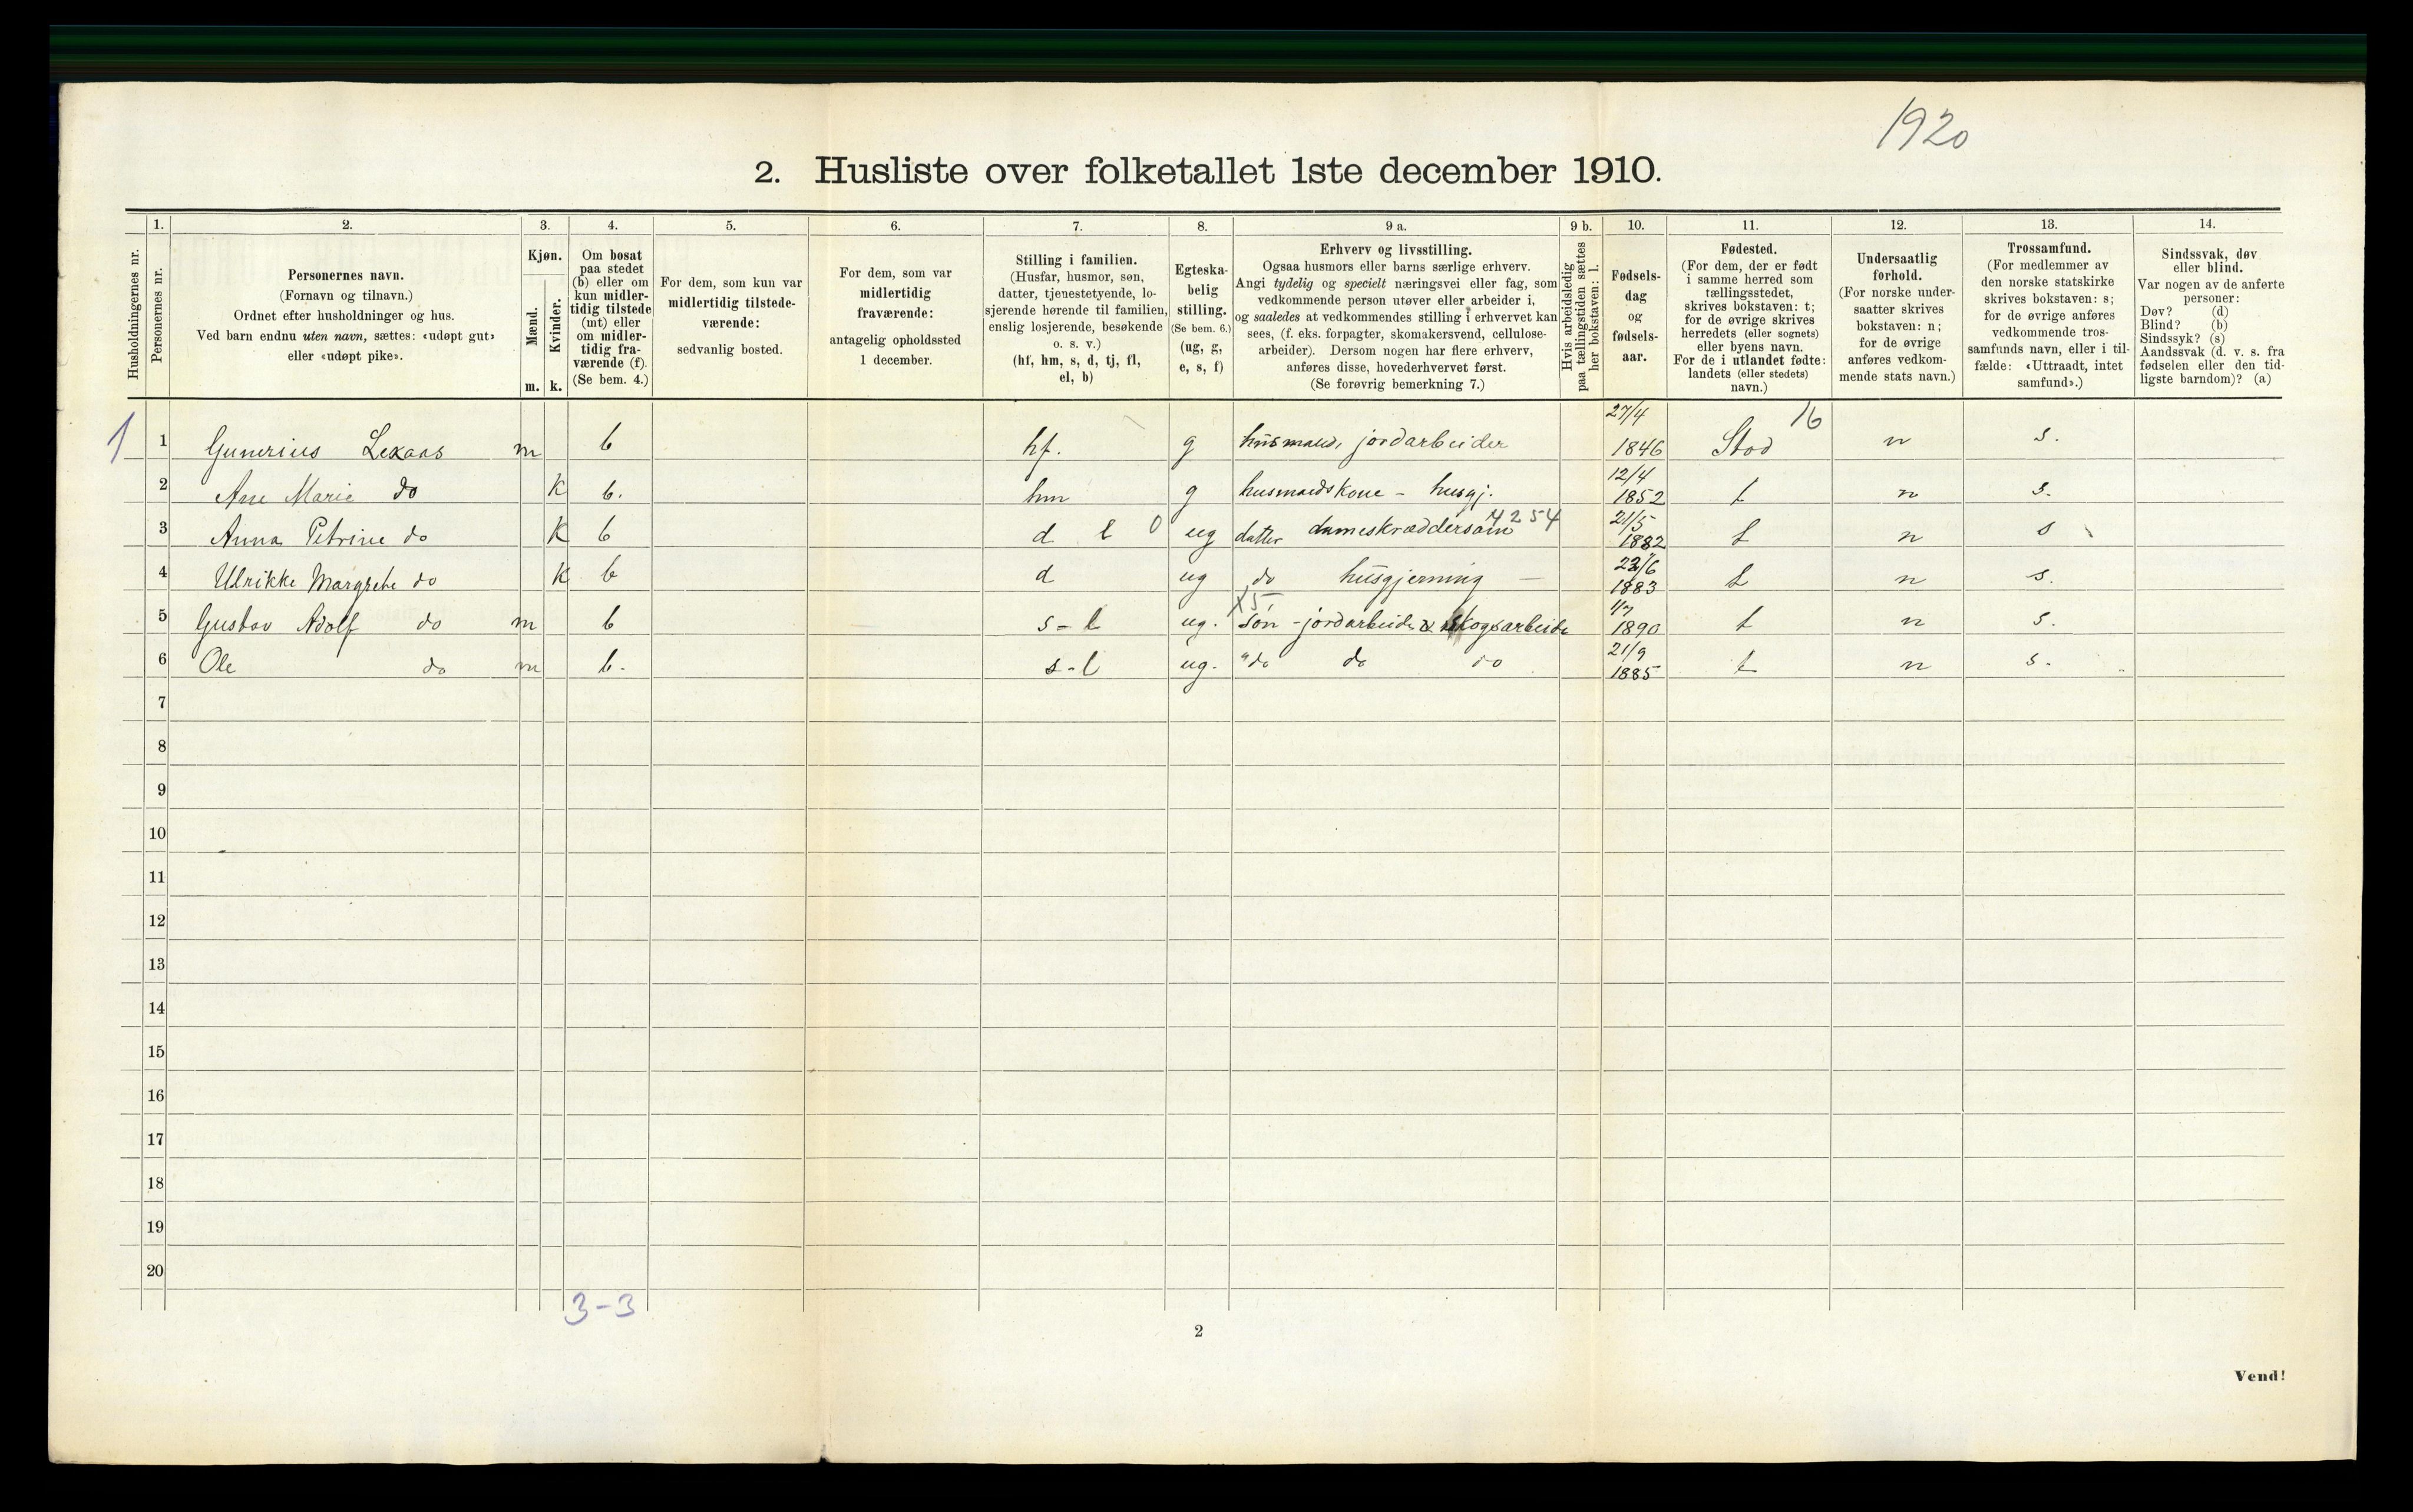 1920
2. Husliste over folketallet 1ste december 1910.
Husholdningernes nr.
1.
Personernes nr.
2.
Personernes navn.
(Fornavn og tilnavn.)
Ordnet efter husholdninger og hus.
Ved barn endnu uten navn, sættes: «udøpt gut»
eller «udøpt pike».
3.
Kjøn.
Mænd.
Kvinder.
m. k.
4.
Om bosat
paa stedet
(b) eller om
kun midler-
tidig tilstede
(mt) eller
om midler-
tidig fra-
værende (f).
(Se bem. 4.)
5.
For dem, som kun var
midlertidig tilstede-
værende:
sedvanlig bosted.
6.
For dem, som var
midlertidig
fraværende:
antagelig opholdssted
1 december.
7.
Stilling i familien.
(Husfar, husmor, søn,
datter, tjenestetyende, lo-
sjerende hørende til familien,
enslig losjerende, besøkende
o. s. v.)
(hf, hm, s, d, tj, fl,
el, b)
8.
Egteska-
belig
stilling.
(Se bem. 6.)
(ug, g,
e, s, f)
9 a.
Erhverv og livsstilling.
Ogsaa husmors eller barns særlige erhverv.
Angi tydelig og specielt næringsvei eller fag, som
vedkommende person utøver eller arbeider i,
og saaledes at vedkommendes stilling i erhvervet kan
sees, (f. eks. forpagter, skomakersvend, cellulose-
arbeider). Dersom nogen har flere erhverv,
anføres disse, hovederhvervet først.
(Se forøvrig bemerkning 7.)
9 b.
Hvis arbeidsledig
paa tællingstiden sættes
her bokstaven: l.
10.
Fødsels-
dag
og
fødsels-
aar.
11.
Fødested.
(For dem, der er født
i samme herred som
tællingsstedet,
skrives bokstaven: t;
for de øvrige skrives
herredets (eller sognets)
eller byens navn.
For de i utlandet fødte:
landets (eller stedets)
navn.)
12.
Undersaatlig
forhold.
(For norske under-
saatter skrives
bokstaven: n;
for de øvrige
anføres vedkom-
mende stats navn.)
13.
Trossamfund.
(For medlemmer av
den norske statskirke
skrives bokstaven: s;
for de øvrige anføres
vedkommende tros-
samfunds navn, eller i til-
fælde: «Uttraadt, intet
samfund».)
14.
Sindssvak, døv
eller blind.
Var nogen av de anførte
personer:
Døv? (d)
Blind? (b)
Sindssyk? (s)
Aandssvak (d. v. s. fra
fødselen eller den tid-
ligste barndom)? (a)
27/4 16
1 1 Gunerius Lexaas m b hf. g husmand, jordarbeider 1846 Stod n s.
12/4
2 Ane Marie do K b. hm g husmandskone - husgj. 1852 t n s.
4254 21/5
3 Anna Petrine do K b d l 0 ug datter dameskræddersøm 1882 t n s
23/6
4 Ulrikke Margrete do K b d ug do husgjerning — 1883 t n s.
X5, 1/7
5 Gustav Adolf do m b s - l ug. søn - jordarbeider & skogsarbeide 1890 t n s.
21/9
6 Ole do m b. s - l ug. "do do do 1885 t n s.
7
8
9
10
11
12
13
14
15
16
17
18
19
20
3-3
2
Vend!